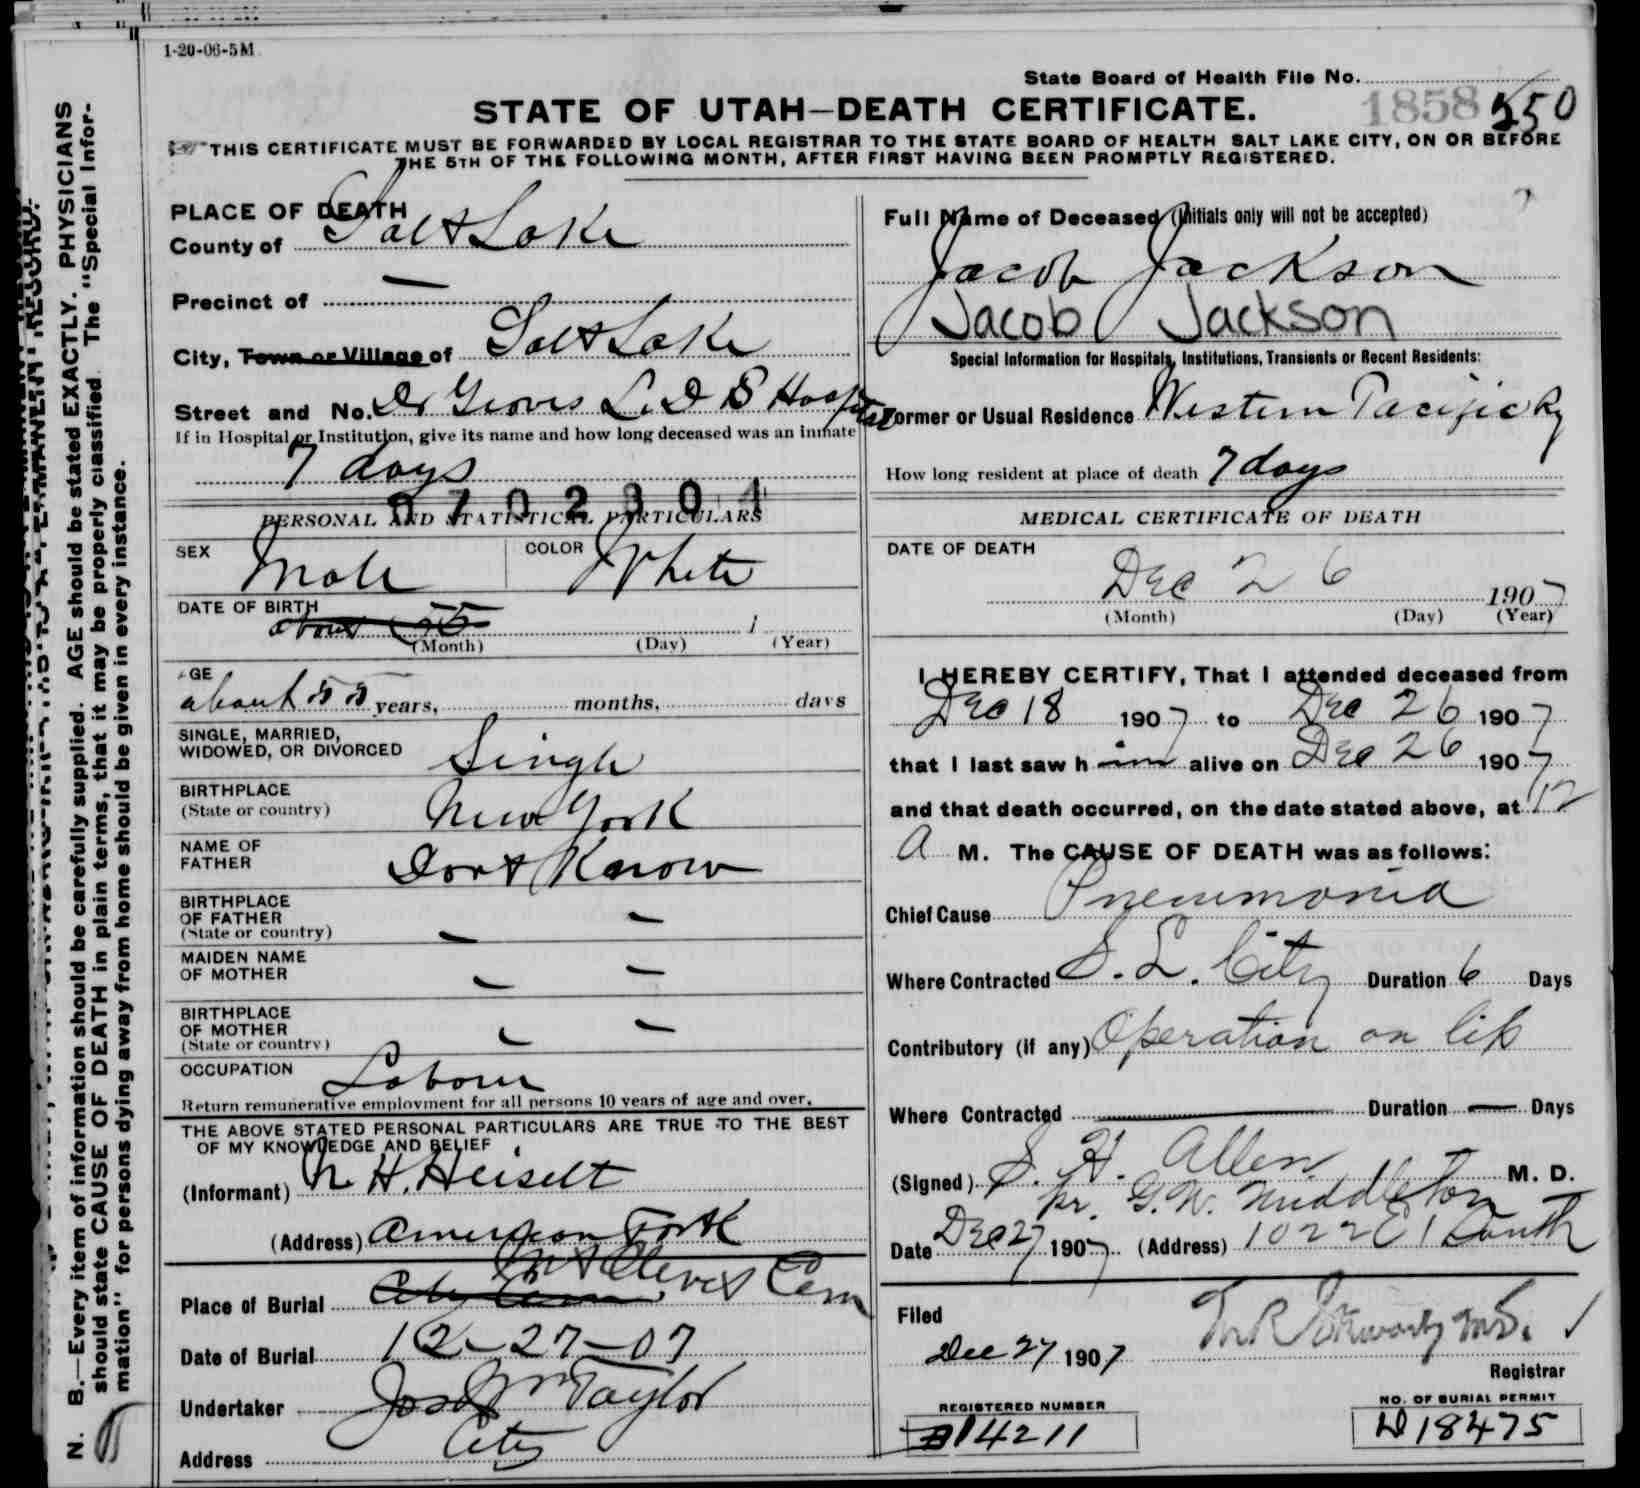 1-20-06-5M
State Board of Health File No.
1858 550
STATE OF UTAH—DEATH CERTIFICATE.
THIS CERTIFICATE MUST BE FORWARDED BY LOCAL REGISTRAR TO THE STATE BOARD OF HEALTH SALT LAKE CITY, ON OR BEFORE
THE 5TH OF THE FOLLOWING MONTH, AFTER FIRST HAVING BEEN PROMPTLY REGISTERED.
N. B.—Every item of information should be carefully supplied. AGE should be stated EXACTLY. PHYSICIANS
should state CAUSE OF DEATH in plain terms, that it may be properly classified. The "Special Infor-
mation" for persons dying away from home should be given in every instance.
PLACE OF DEATH
County of Salt Lake
Precinct of —
City, Town or Village of Salt Lake
Street and No. Dr Groves L.D.S Hospital
If in Hospital or Institution, give its name and how long deceased was an inmate
7 days
0702301
PERSONAL AND STATISTICAL PARTICULARS
SEX Male COLOR White
DATE OF BIRTH about 55 1
(Month) (Day) (Year)
AGE
about 55 years, months, days
SINGLE, MARRIED,
WIDOWED, OR DIVORCED Single
BIRTHPLACE
(State or country) New York
NAME OF
FATHER Dont Know
BIRTHPLACE
OF FATHER
(State or country) — —
MAIDEN NAME
OF MOTHER — —
BIRTHPLACE
OF MOTHER
(State or country) — —
OCCUPATION Laborer
Return remunerative employment for all persons 10 years of age and over.
THE ABOVE STATED PERSONAL PARTICULARS ARE TRUE TO THE BEST
OF MY KNOWLEDGE AND BELIEF
(Informant) H. Heiselt
(Address) American Fork
Mt Olivet Cem
Place of Burial City Cem
Date of Burial 12-27-07
Undertaker Jos Wm Taylor
Address City
Full Name of Deceased (Initials only will not be accepted)
Jacob Jackson
Jacob Jackson
Special Information for Hospitals, Institutions, Transients or Recent Residents:
Former or Usual Residence Western Pacific Ry
How long resident at place of death 7 days
MEDICAL CERTIFICATE OF DEATH
DATE OF DEATH
Dec 26 1907
(Month) (Day) (Year)
I HEREBY CERTIFY, That I attended deceased from
Dec 18 1907 to Dec 26 1907
that I last saw h im alive on Dec 26 1907
and that death occurred, on the date stated above, at 12
A M. The CAUSE OF DEATH was as follows:
Chief Cause Pneumonia
Where Contracted S. L. City Duration 6 Days
Contributory (if any) Operation on lip
Where Contracted — Duration — Days
(Signed) S. H. Allen M. D.
pr. G.W. Middleton
Date Dec 27 1907 (Address) 1022 E 1 South
Filed
Dec 27 1907
Registrar
REGISTERED NUMBER
14211
NO. OF BURIAL PERMIT
D18475